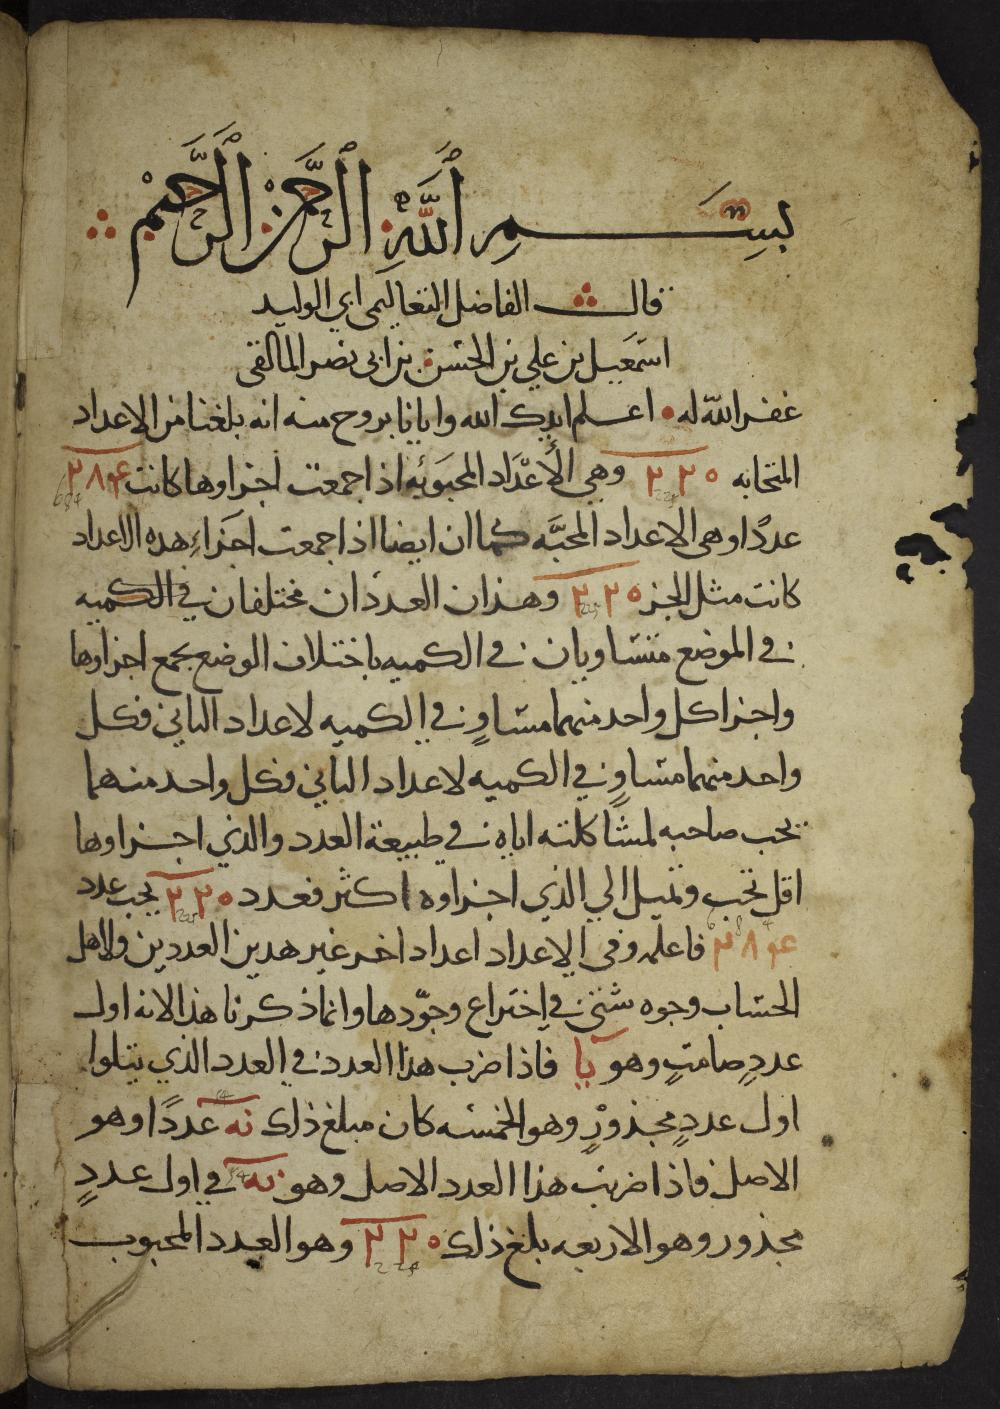 بسم الله الرحمن الرحيم
قال الفاضل التعاليمى ابي الوليد
اسمعيل بن علي بن الحسن بن ابى نصر المالقى
غفر الله له اعلم ايدك الله وايانا بروح منه انه بلغنا من الاعداد
المتحابه ٢٢٠ وهي الأعداد المحبوبه اذا جمعت اجزاوها كانت ٢٨۴
عددا وهى الاعداد المحبه كما ان ايضا اذا جمعت اجزاء هذه الاعداد
كانت مثل الجز ٢٢٠ وهذان العددان مختلفان في الكميه
في الموضع متساويان في الكميه باختلاف الوضع بجمع اجزاوها
واجزا كل واحد منهما مساوٍ في الكميه لاعداد الثاني فكل
واحد منهما مساوٍ في الكميه لاعداد الثاني فكل واحد منهما
يحب صاحبه لمشاكلته اياه في طبيعة العدد والذي اجزاوها
اقل تحب وتميل الي الذي اجزاوه اكثر فعدد ٢٢٠ يحب عدد
٢٨۴ فاعلمه وفى الاعداد اعداد اخر غير هدين العددين ولاهل
الحساب وجوه شتى في اختراع وجودها وانما ذكرنا هذا لانه اول
عددٍ صامتٍ وهو يا فاذا ضرب هذا العدد في العدد الذي يتلوا
اول عددٍ مجذورٍ وهو الخمسه كان مبلغ ذلك نه عددًا وهو
الاصل فاذا ضربت هذا العدد الاصل وهو نه في اول عددٍ
مجذور وهو الاربعه بلغ ذلك ٢٢٠ وهو العدد المحبوب